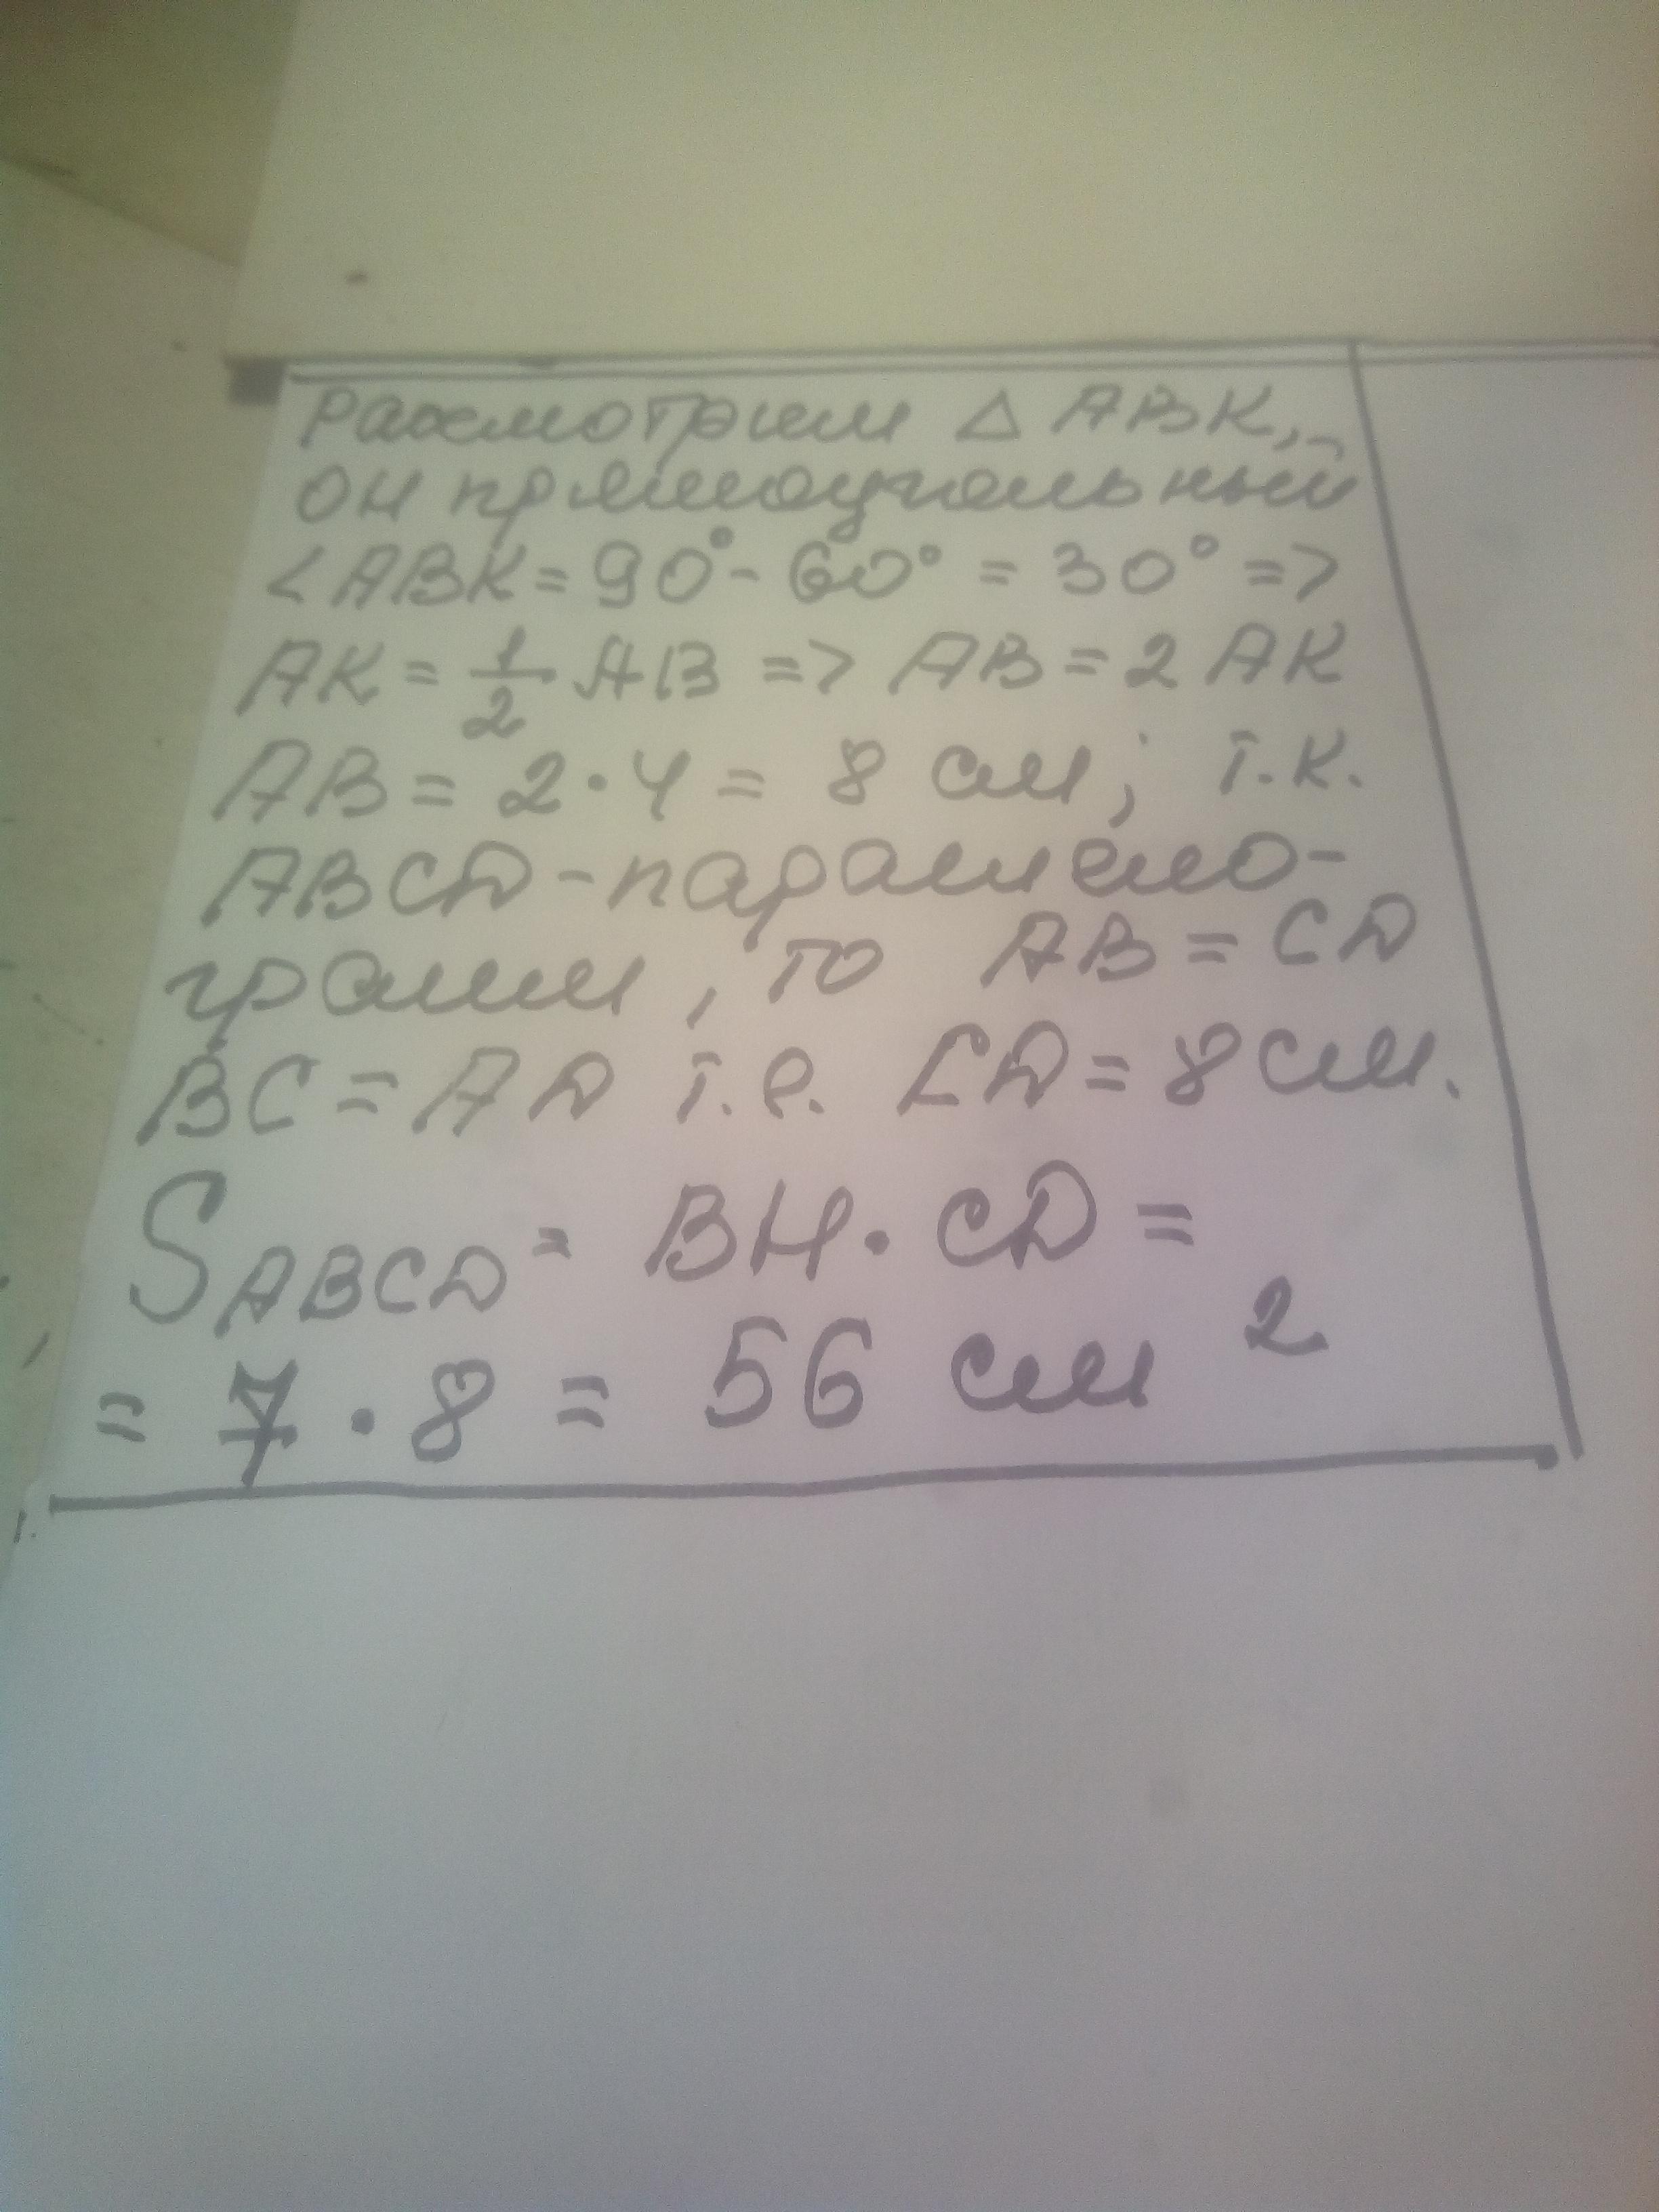 Рассмотрим △ ABK,
он прямоугольный
<ABK = 90° - 60° = 30° =>
AK = 1/2 · AB => AB = 2 AK
AB = 2 · 4 = 8 см; т.к.
ABCD - параллело-
грамм, то AB = CD
BC = AD т.е. CD = 8 см.
S ABCD = BH · CD =
= 7 · 8 = 56 см ²